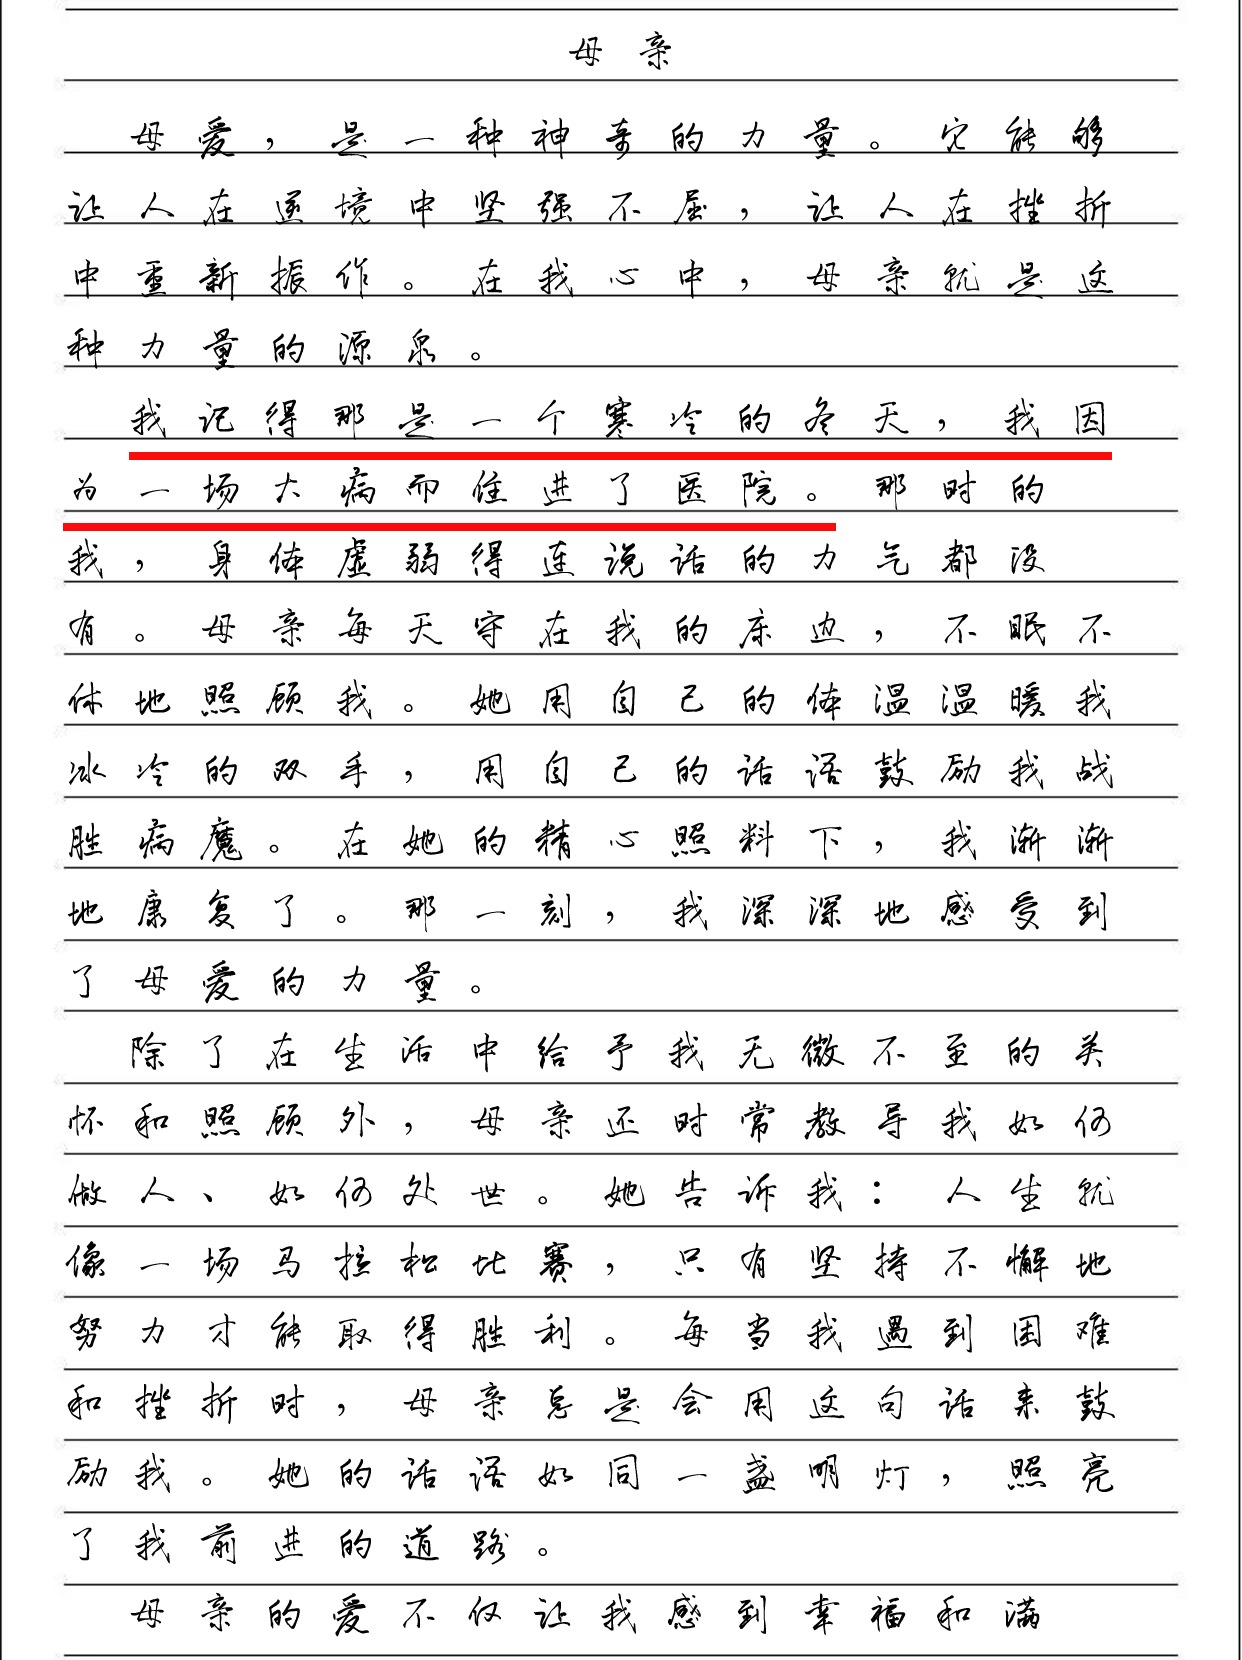 母亲
母爱，是一种神奇的力量。它能够
让人在逆境中坚强不屈，让人在挫折
中重新振作。在我心中，母亲就是这
种力量的源泉。
我记得那是一个寒冷的冬天，我因
为一场大病而住进了医院。那时的
我，身体虚弱得连说话的力气都没
有。母亲每天守在我的床边，不眠不
休地照顾我。她用自己的体温温暖我
冰冷的双手，用自己的话语鼓励我战
胜病魔。在她的精心照料下，我渐渐
地康复了。那一刻，我深深地感受到
了母爱的力量。
除了在生活中给予我无微不至的关
怀和照顾外，母亲还时常教导我如何
做人、如何处世。她告诉我：人生就
像一场马拉松比赛，只有坚持不懈地
努力才能取得胜利。每当我遇到困难
和挫折时，母亲总是会用这句话来鼓
励我。她的话语如同一盏明灯，照亮
了我前进的道路。
母亲的爱不仅让我感到幸福和满